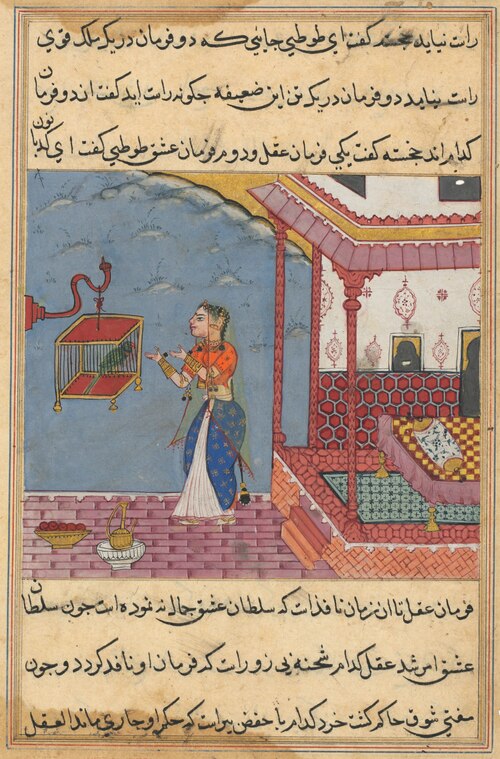 راست نیاید خجسته گفت ای طوطی جائی که دو فرمان در یک ملک قوی
راست نیاید دو فرمان در یک تن این ضعیفه چگونه راست اید گفت ان دو فرمان
کدام اند خجسته گفت یکی فرمان عقل و دوم فرمان عشق طوطی گفت ای کدبانون
فرمان عقل تا ان زمان نافذ است که سلطان عشق جمال نه نموده است چون سلطان
عشق امر شد عقل کدام شحنه بی زور است که فرمان او نافذ کردد و چون
مفتی شوق حاکم کشت خرد کدام است که حکم او جاری ماند العقل